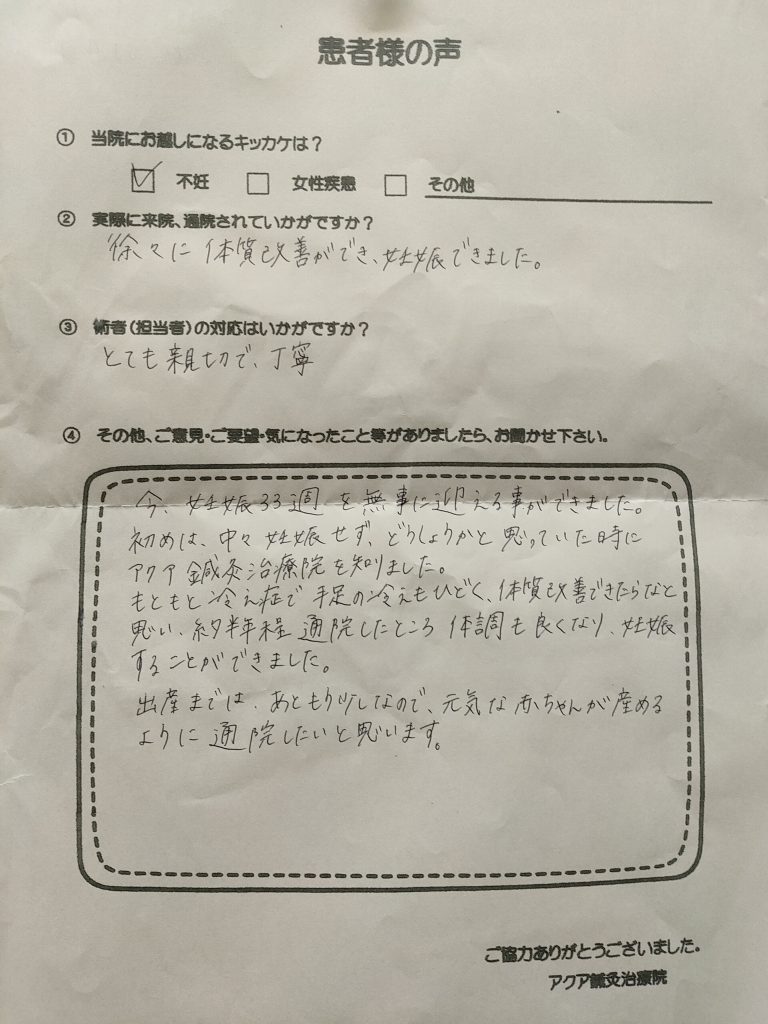 患者様の声
① 当院にお越しになるキッカケは？
☑ 不妊 □ 女性疾患 □ その他
② 実際に来院、通院されていかがですか？
徐々に体質改善ができ、妊娠できました。
③ 術者（担当者）の対応はいかがですか？
とても親切で、丁寧
④ その他、ご意見・ご要望・気になったこと等がありましたら、お聞かせ下さい。
今、妊娠33週を無事に迎える事ができました。
初めは、中々妊娠せず、どうしようかと思っていた時に
アクア鍼灸治療院を知りました。
もともと冷え症で手足の冷えもひどく、体質改善できたらなと
思い、約半年程通院したところ体調も良くなり、妊娠
することができました。
出産までは、あともう少しなので、元気な赤ちゃんが産める
ように通院したいと思います。
ご協力ありがとうございました。
アクア鍼灸治療院